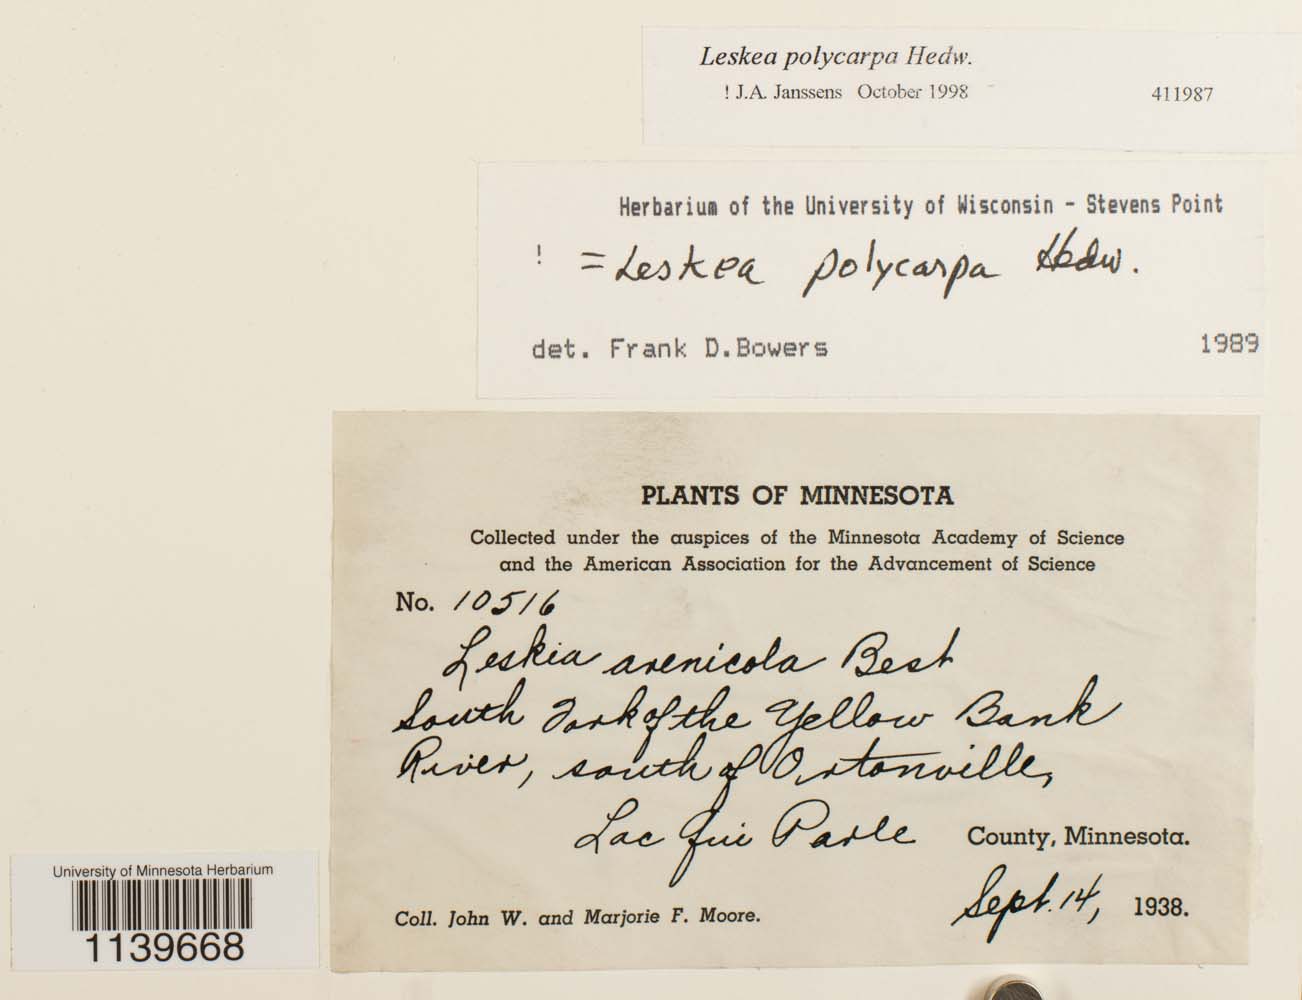 Leskea polycarpa Hedw.
! J.A. Janssens October 1998 411987
Herbarium of the University of Wisconsin - Stevens Point
! = Leskea polycarpa Hedw.
det. Frank D. Bowers 1989
PLANTS OF MINNESOTA
Collected under the auspices of the Minnesota Academy of Science
and the American Association for the Advancement of Science
No. 10516
Leskia arenicola Best
South Fork of the Yellow Bank
River, south of Ortonville,
Lac Qui Parle County, Minnesota.
Sept. 14, 1938.
Coll. John W. and Marjorie F. Moore.
University of Minnesota Herbarium
1139668